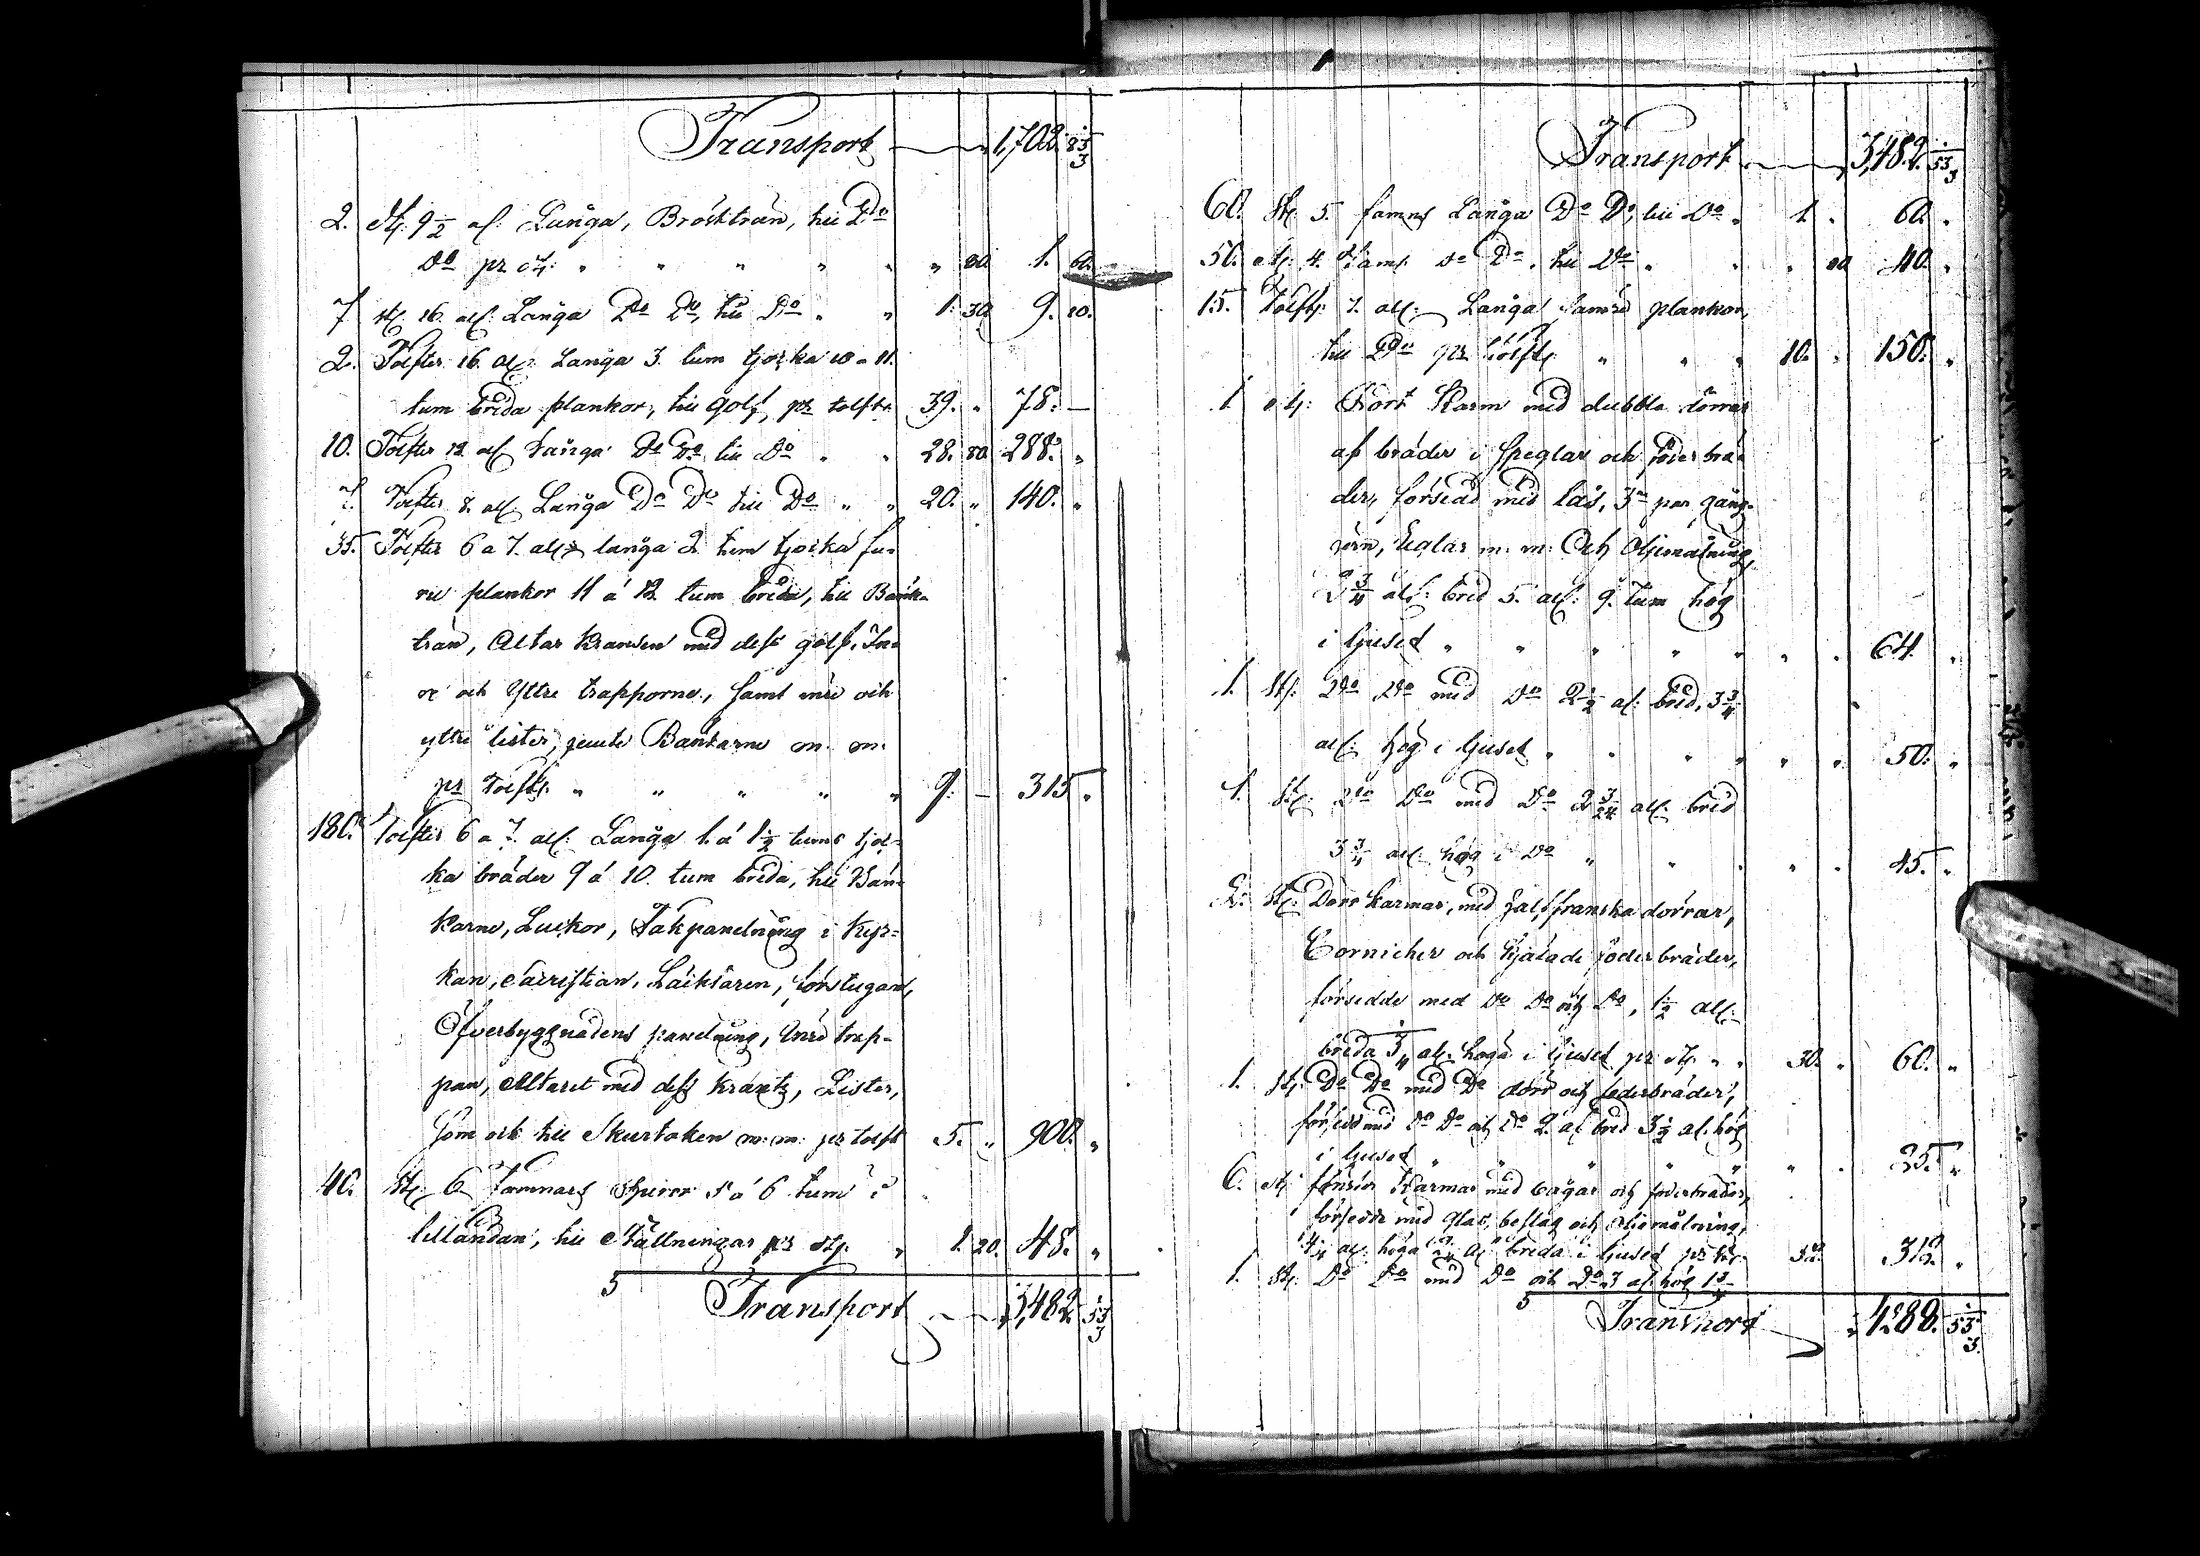 Transport 1,702. 83 1/3
2. st: 9 1/2 al: Långa, Bröstträn, till Do
Do pr st: " " " " " " 80 1. 60.
7 st: 16. al: Långa Do Do, till Do " " 1. 30 9. 10.
2. Tolfter 16. al: Långa 3. tum tjocka 10 a 11.
tum breda plankor, till golf, pr tolft 39. " 78. —
10. Tolfter 12 al: Långa Do Do till Do " " 28. 80. 288. "
7. Tolfter 8. al: Långa Do Do till Do " " 20. " 140. "
35. Tolfter 6 a 7. al: långa 2. tum tjocka fu-
ru plankor 11 á 12. tum breda, till Bänk-
trän, Altar Kransen med dess golf, In-
re och Yttre trapporne, samt inre och
yttre lister, jemte Bänkarne m. m.
pr Tolft: " " " " " 9. — 315. "
180. Tolfter 6 a 7. al: Långa 1. á 1 1/2 tums tjoc-
ka bräder 9 á 10. tum breda, till Bän-
karne, Luckor, Takpanelning i Kyr-
kan, Sacristian, Läcktaren, förstugan,
Öfverbyggnadens panelning, Inre trap-
pan, Altaret med dess krants, Lister,
Som ock till Skurtaken m: m: pr tolft 5. " 900. "
40. st: 6 Famnars Spiror 5 á 6 tum i
lilländan, till Ställningar pr st: " 1. 20. 48. "
5
Transport 3,482. 53 1/3
Transport 3,482. 53 1/3
60. st: 5. famns Långa Do Do, till Do " 1. " 60. "
50. st: 4. Famns Do Do, till Do " " " 80 40. "
15. Tolft: 7. al: Långa plankor,
till Do pr tolft: " " " 10. " 150. "
1 st: Port Karm med dubbla dörrar
af bräder i speglar och foderbrä-
der, försedd med lås, 3ne par gång-
jern, Reglar m: m: Och Oljemålning,
2 3/4 al: bred 5. al: 9. tum hög
i ljuset " " " " " " 64. "
1. st: Do Do med Do 2 1/2 al: bred, 3 3/4
al: hög i ljuset " " " " " 50. "
1. st: Do Do med Do 2 3/24 al: bred
3 3/4 al: hög i Do " " " " 45. "
2. st: Dörr karmar, med halffranska dörrar,
Cornicher och kjälade foderbräder,
försedde med Do Do och Do, 1 1/2 al:
breda 3 1/4 al: höga i ljuset pr st: " " 30. " 60. "
1. st: Do Do med Do dörr och foderbräder,
försedd med Do Do och Do 2. al: bred 3 1/2 al: hög
i ljuset " " " " " " 35. "
6. st: fönster Karmar med bågar och foderbräder,
försedde med glas, beslag och oljemålning,
al: höga al: breda i ljuset pr st: 52. 312. "
1. st: Do Do med Do och Do 3 al: hög 1 3/4
5
Transport 4,288. 53 1/3